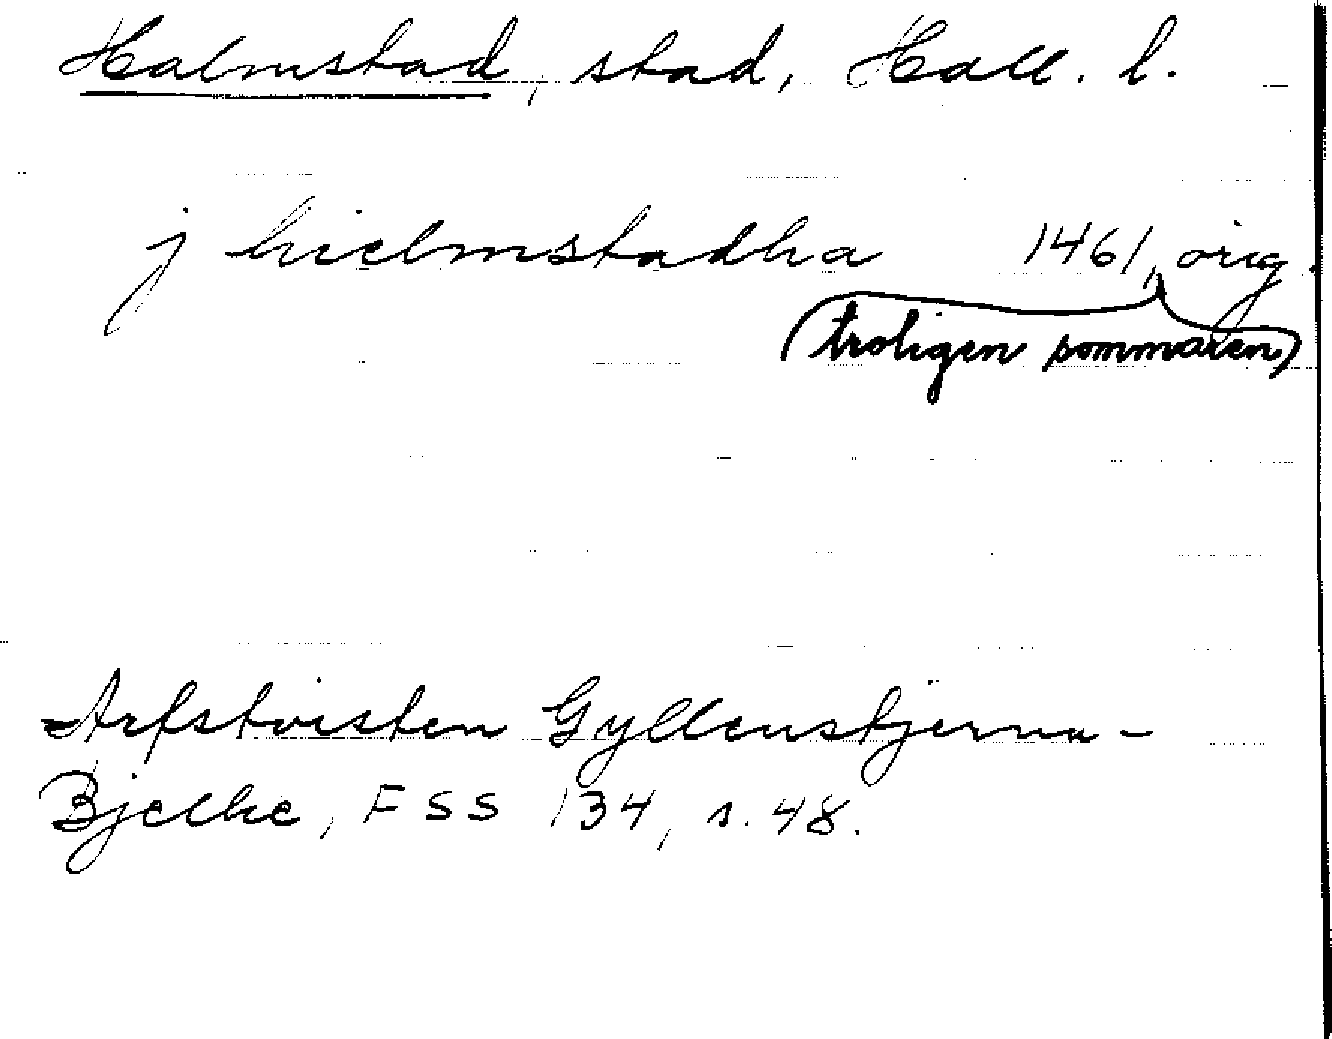 Halmstad, stad, Hall. l.
j hielmstadha 1461, orig.
(troligen sommaren)
Arfstvisten Gyllenstjerna-
Bjelke, FSS 134, s. 48.